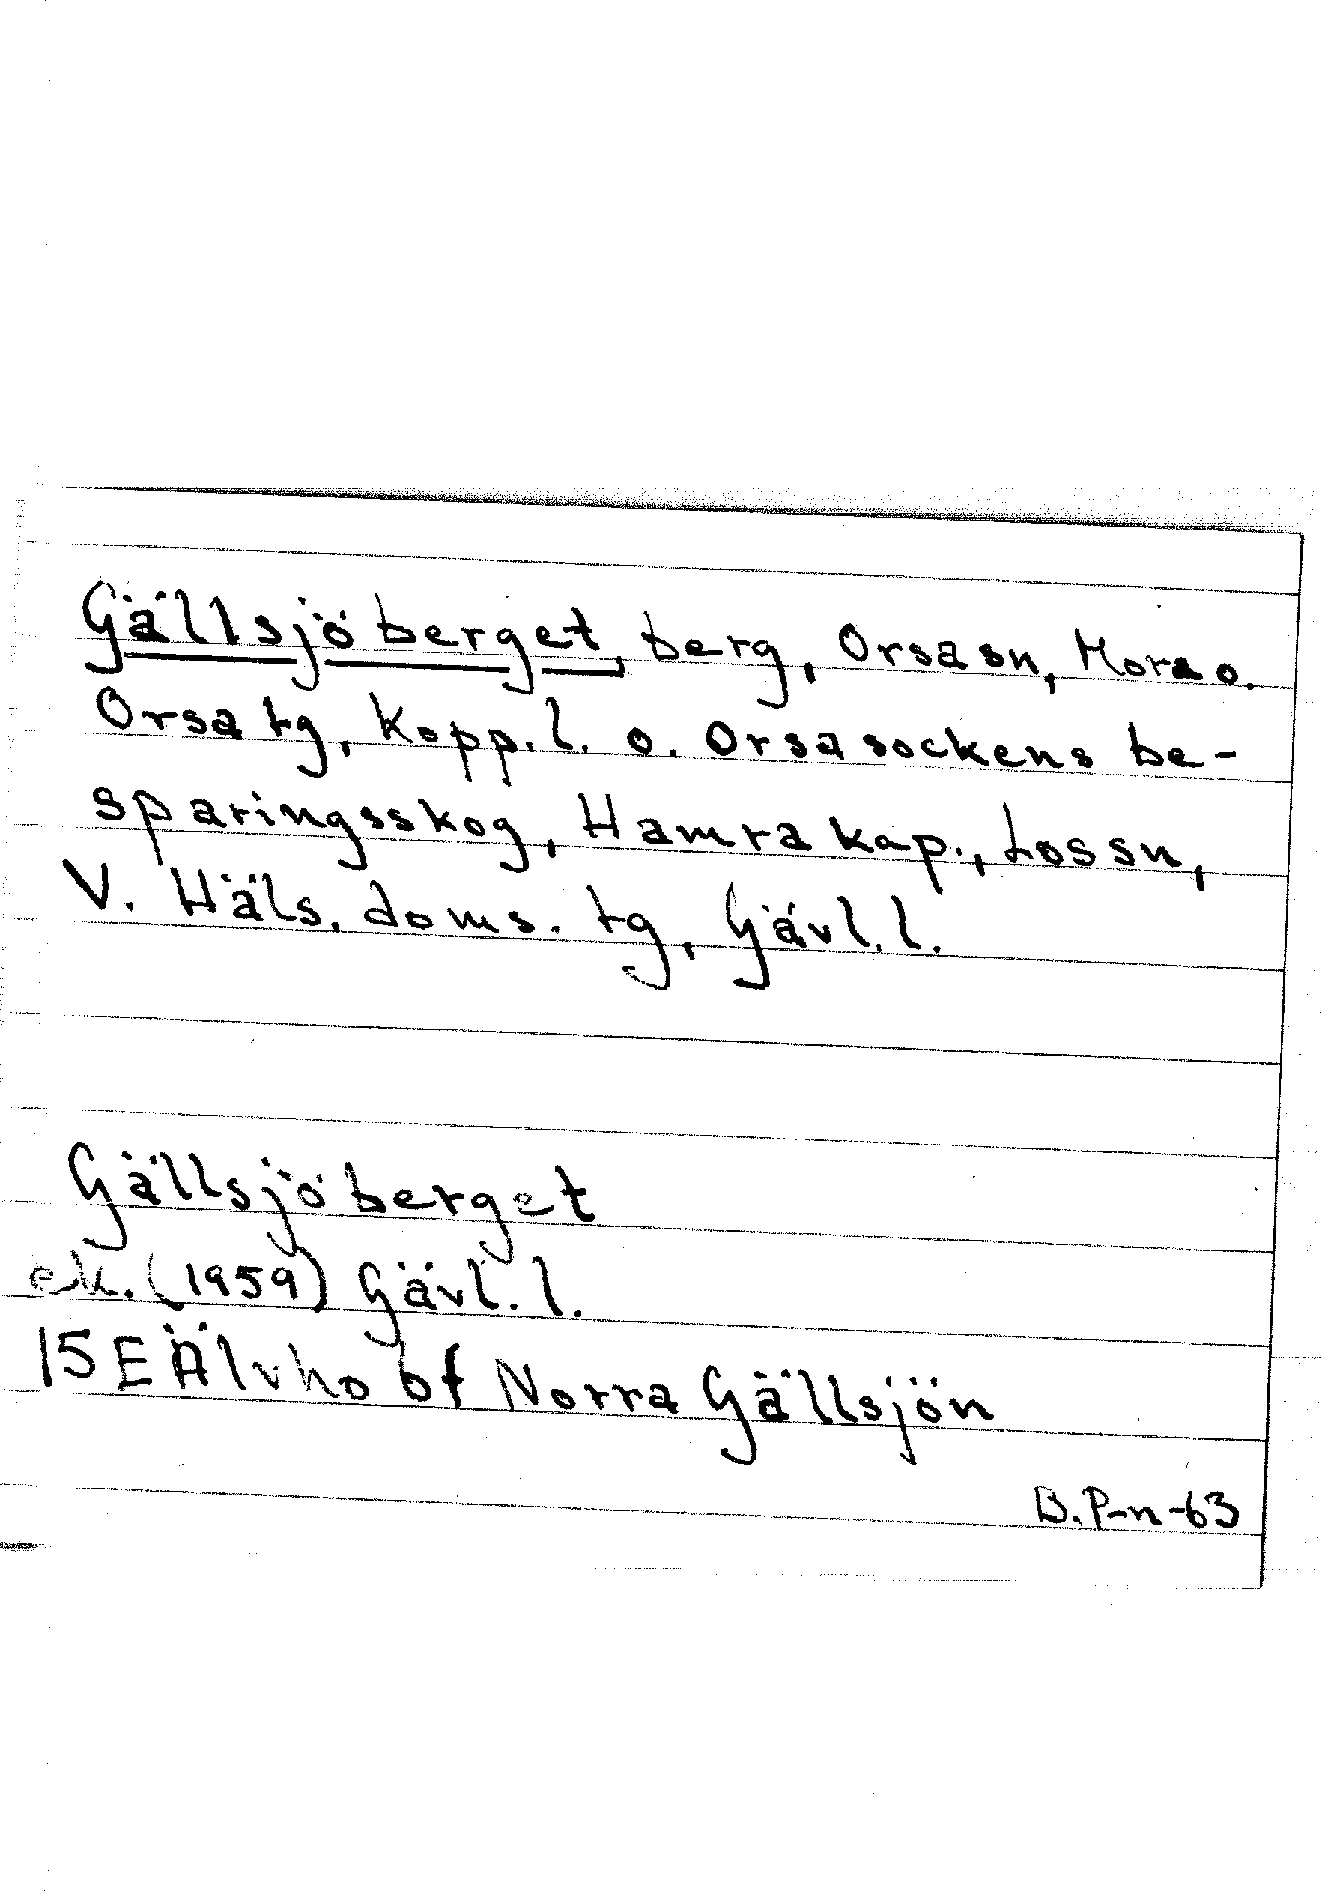 Gällsjöberget, berg, Orsa sn, Mora o.
Orsa tg, Kopp. l. o. Orsa sockens be-
sparingsskog, Hamra kap., Los sn,
V. Häls. doms. tg, Gävl. l.
Gällsjöberget
ek. (1959) Gävl. l.
15 E Älvho bf Norra Gällsjön
B. P-n -63